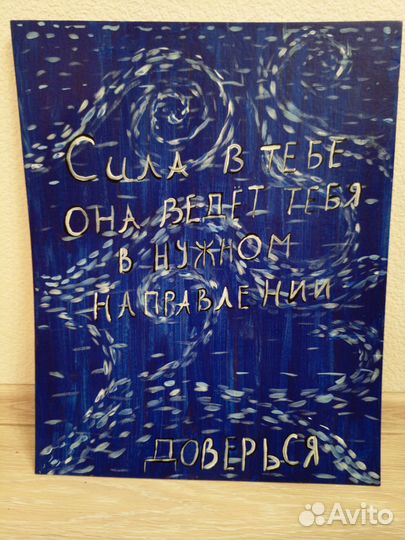 Сила в тебе
она ведёт тебя
в нужном
направлении
доверься
Avito